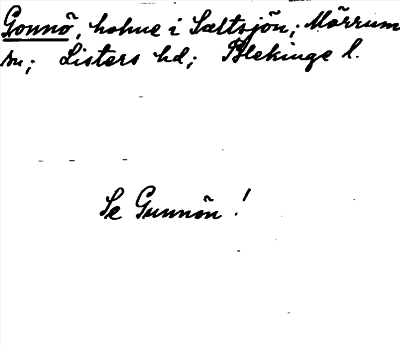 Gonnö, holme i Saltsjön; Mörrum
sn; Listers hd; Blekinge l.
Se Gunnön!